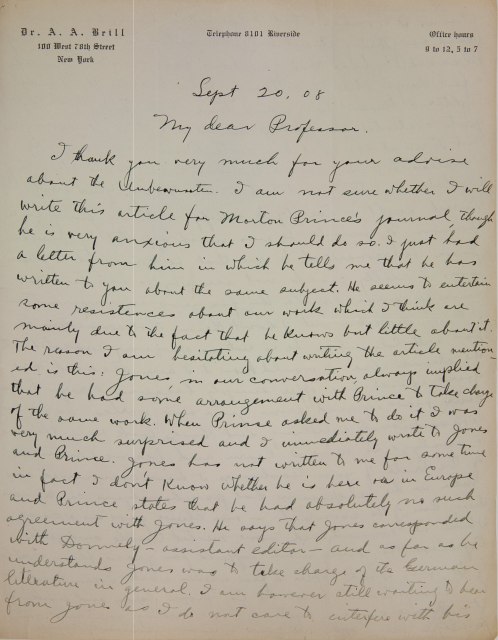 Dr. A. A. Brill
100 West 78th Street
New York
Telephone 8101 Riverside
Office hours
9 to 12, 5 to 7
Sept 20, 08
My dear Professor.
I thank you very much for your advise
about the Unbewusste. I am not sure whether I will
write this article for Morton Prince's journal, though
he is very anxious that I should do so. I just had
a letter from him in which he tells me that he has
written to you about the same subject. He seems to entertain
some resistences about our work which I think are
mainly due to the fact that he knows but little about it.
The reason I am hesitating about writing the article mention-
ed is this: Jones, in our conversation, always implied
that he had some arrangement with Prince to take charge
of the same work. When Prince asked me to do it I was
very much surprised and I immediately wrote to Jones
and Prince. Jones has not written to me for some time
in fact I don't know whether he is here or in Europe
and Prince states that he had absolutely no such
agreement with Jones. He says that Jones corresponded
with Donnely – assistant editor – and as far as he
understands Jones was to take charge of the German
literature in general. I am however still waiting to hear
from Jones as I do not care to interfere with his